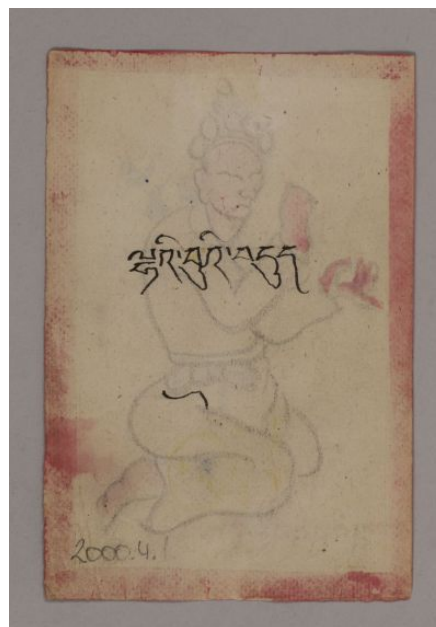 ལྷའི་བུའི་བདུད
2000.4.